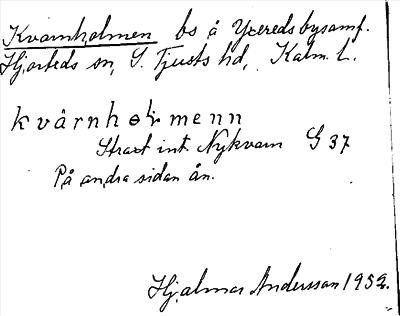 Kvarnholmen bs å Yxereds bysamf.
Hjorteds sn, S. Tjusts hd, Kalm. L.
kvàrnhɵlmenn
Strax int. Nykvarn G 37
På andra sidan ån.
Hjalmar Andersson 1952.